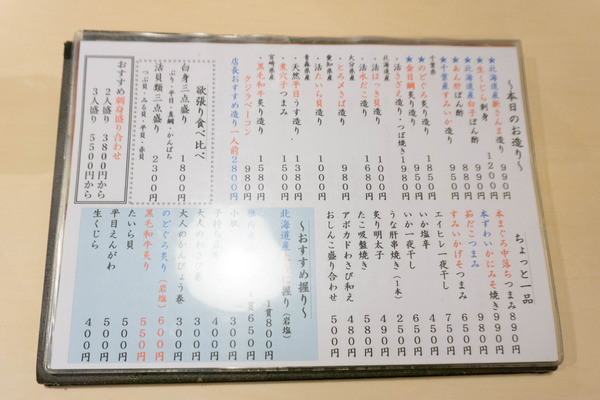 ～本日のお造り～
★北海道産新さんま造り 990円
★生くじら刺身 1200円
★北海道産白子ぽん酢 950円
★あん肝ぽん酢 880円
★千葉産すみいか造り 950円
千葉県
★のどぐろ炙り造り 1850円
★金目鯛炙り造り
・活さざえ造り・つぼ焼き 1980円
北海道産
・活ほっき貝造り 1000円
・活水だこ造り 1680円
大分県産
・とろ〆さば造り 990円
愛知県産
・活たいら貝造り 1000円
青森県産
・天然平目うす造り 1380円
・煮穴子つまみ
宮崎県産
・黒毛和牛炙り造り 1580円
・クジラベーコン 980円
店長おすすめ造り一人前 2800円
欲張り食べ比べ
白身三点盛り 1800円
ぶり・平目・真鯛・かんぱち
活貝類三点盛り 2300円
つぶ貝・みる貝・平貝・赤貝
おすすめ刺身盛り合わせ
2人盛り 3800円から
3人盛り 5500円から
ちょっと一品
本まぐろ中落ちつまみ 890円
本ずわいかにみそ焼き 990円
茹だこつまみ 650円
すみいかげそつまみ 650円
エイヒレ一夜干し 750円
いか塩辛 450円
いか一夜干し 650円
うな肝串焼き（1本） 250円
炙り明太子 490円
たこ吸盤焼き 480円
アボカドわさび和え 580円
おしんこ盛り合わせ 500円
～おすすめ握り～
握り（岩塩）
1貫 800円
1貫 650円
小肌 300円
子持ち 400円
大人のわさび巻 300円
大人のかんぴょう巻 300円
のどぐろ炙り（岩塩） 600円
黒毛和牛炙り 550円
たいら貝 500円
平目えんがわ 500円
生くじら 400円